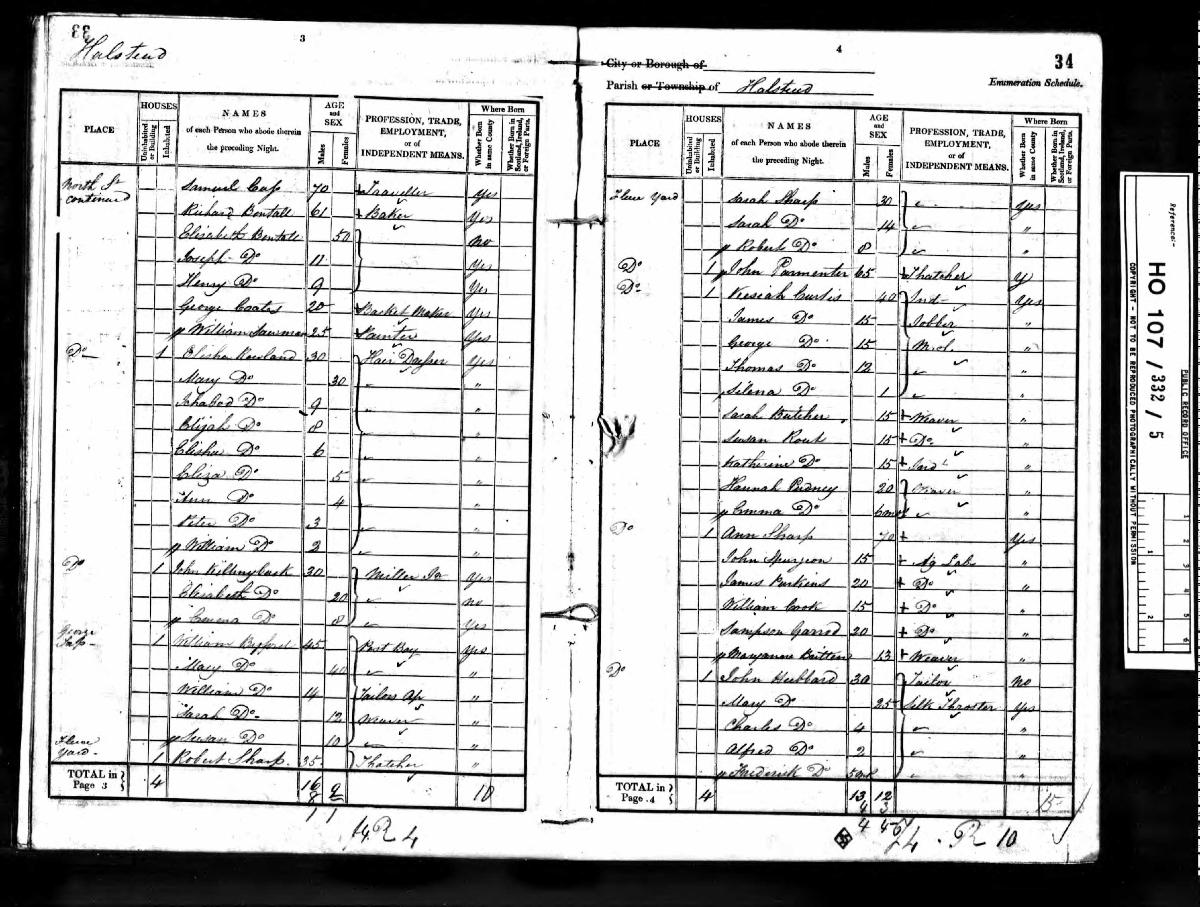 33
Halstead
3
HOUSES
NAMES
AGE and SEX
Where Born
PLACE
Uninhabited or Building
Inhabited
of each Person who abode therein the preceding Night.
Males
Females
PROFESSION, TRADE, EMPLOYMENT, or of INDEPENDENT MEANS.
Whether Born in same County
Whether Born in Scotland, Ireland, or Foreign Parts.
North St continued Samuel 70 Traveller Yes
Richard Bentall 61 Baker Yes
Elizabeth Bentall 50 no
Joseph Do 11 Yes
Henry Do 9 Yes
George Coates 20 Basket Maker Yes
William 25 Painter Yes
Do 1 Elisha Rowland 30 Hair Dresser Yes
Mary Do 30 "
Ichabod Do 9 "
Elijah Do 8 "
Elisha Do 6 "
Eliza Do 5 "
Ann Do 4 "
Peter Do 3 "
William Do 2 "
Do 1 John Killingback 30 Miller Jr Yes
Elizabeth Do 20 no
Emma Do 8 Yes
George 1 William 45 Post Boy Yes
Mary Do 40 "
William Do 14 Tailors Ap "
Sarah Do 12 Weaver "
Susan Do 10 "
Yard 1 Robert Sharp 35 Thatcher "
TOTAL in Page 3 4 16 9 10
8
11
4
4
34
City or Borough of
Parish or Township of Halstead
Enumeration Schedule.
HOUSES
NAMES
AGE and SEX
Where Born
PLACE
Uninhabited or Building
Inhabited
of each Person who abode therein the preceding Night.
Males
Females
PROFESSION, TRADE, EMPLOYMENT, or of INDEPENDENT MEANS.
Whether Born in same County
Whether Born in Scotland, Ireland, or Foreign Parts.
Yard Sarah Sharp 30 Yes
Sarah Do 14 "
Robert Do 8 "
Do 1 John Parmenter 65 Thatcher Y
Do 1 Kesiah Curtis 40 Ind Yes
James Do 15 Jobber "
George Do 15 "
Thomas Do 12 "
Selena Do 1 "
Sarah Butcher 15 Weaver "
Susan Rout 15 Do "
Katherine Do 15 "
Hannah Pudney 20 Weaver "
Emma Do 6 mos "
Do 1 Ann Sharp 70 Yes
John Spurgeon 15 Ag Lab "
James Parkins 20 Do "
William Cook 15 Do "
Sampson Garrod 20 Do "
Britten 13 Weaver "
Do 1 John Hubbard 30 Tailor no
Mary Do 25 Silk Throster Yes
Charles Do 4 "
Alfred Do 2 "
Frederick Do 5 "
TOTAL in Page 4 4 13 12 15
4 3
R 10
Reference:-
HO 107/332/5
PUBLIC RECORD OFFICE
COPYRIGHT - NOT TO BE REPRODUCED PHOTOGRAPHICALLY WITHOUT PERMISSION